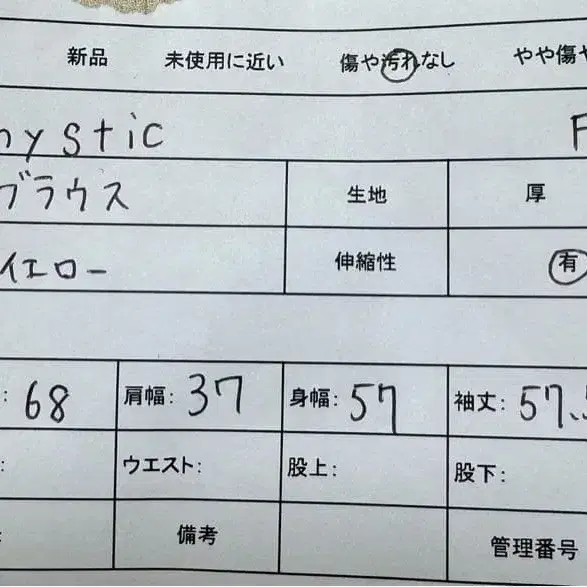 新品 未使用に近い 傷や汚れなし やや傷や
mystic F
ブラウス 生地 厚
イエロー 伸縮性 有
: 68 肩幅: 37 身幅: 57 袖丈: 57.5
: ウエスト: 股上: 股下:
: 備考 管理番号